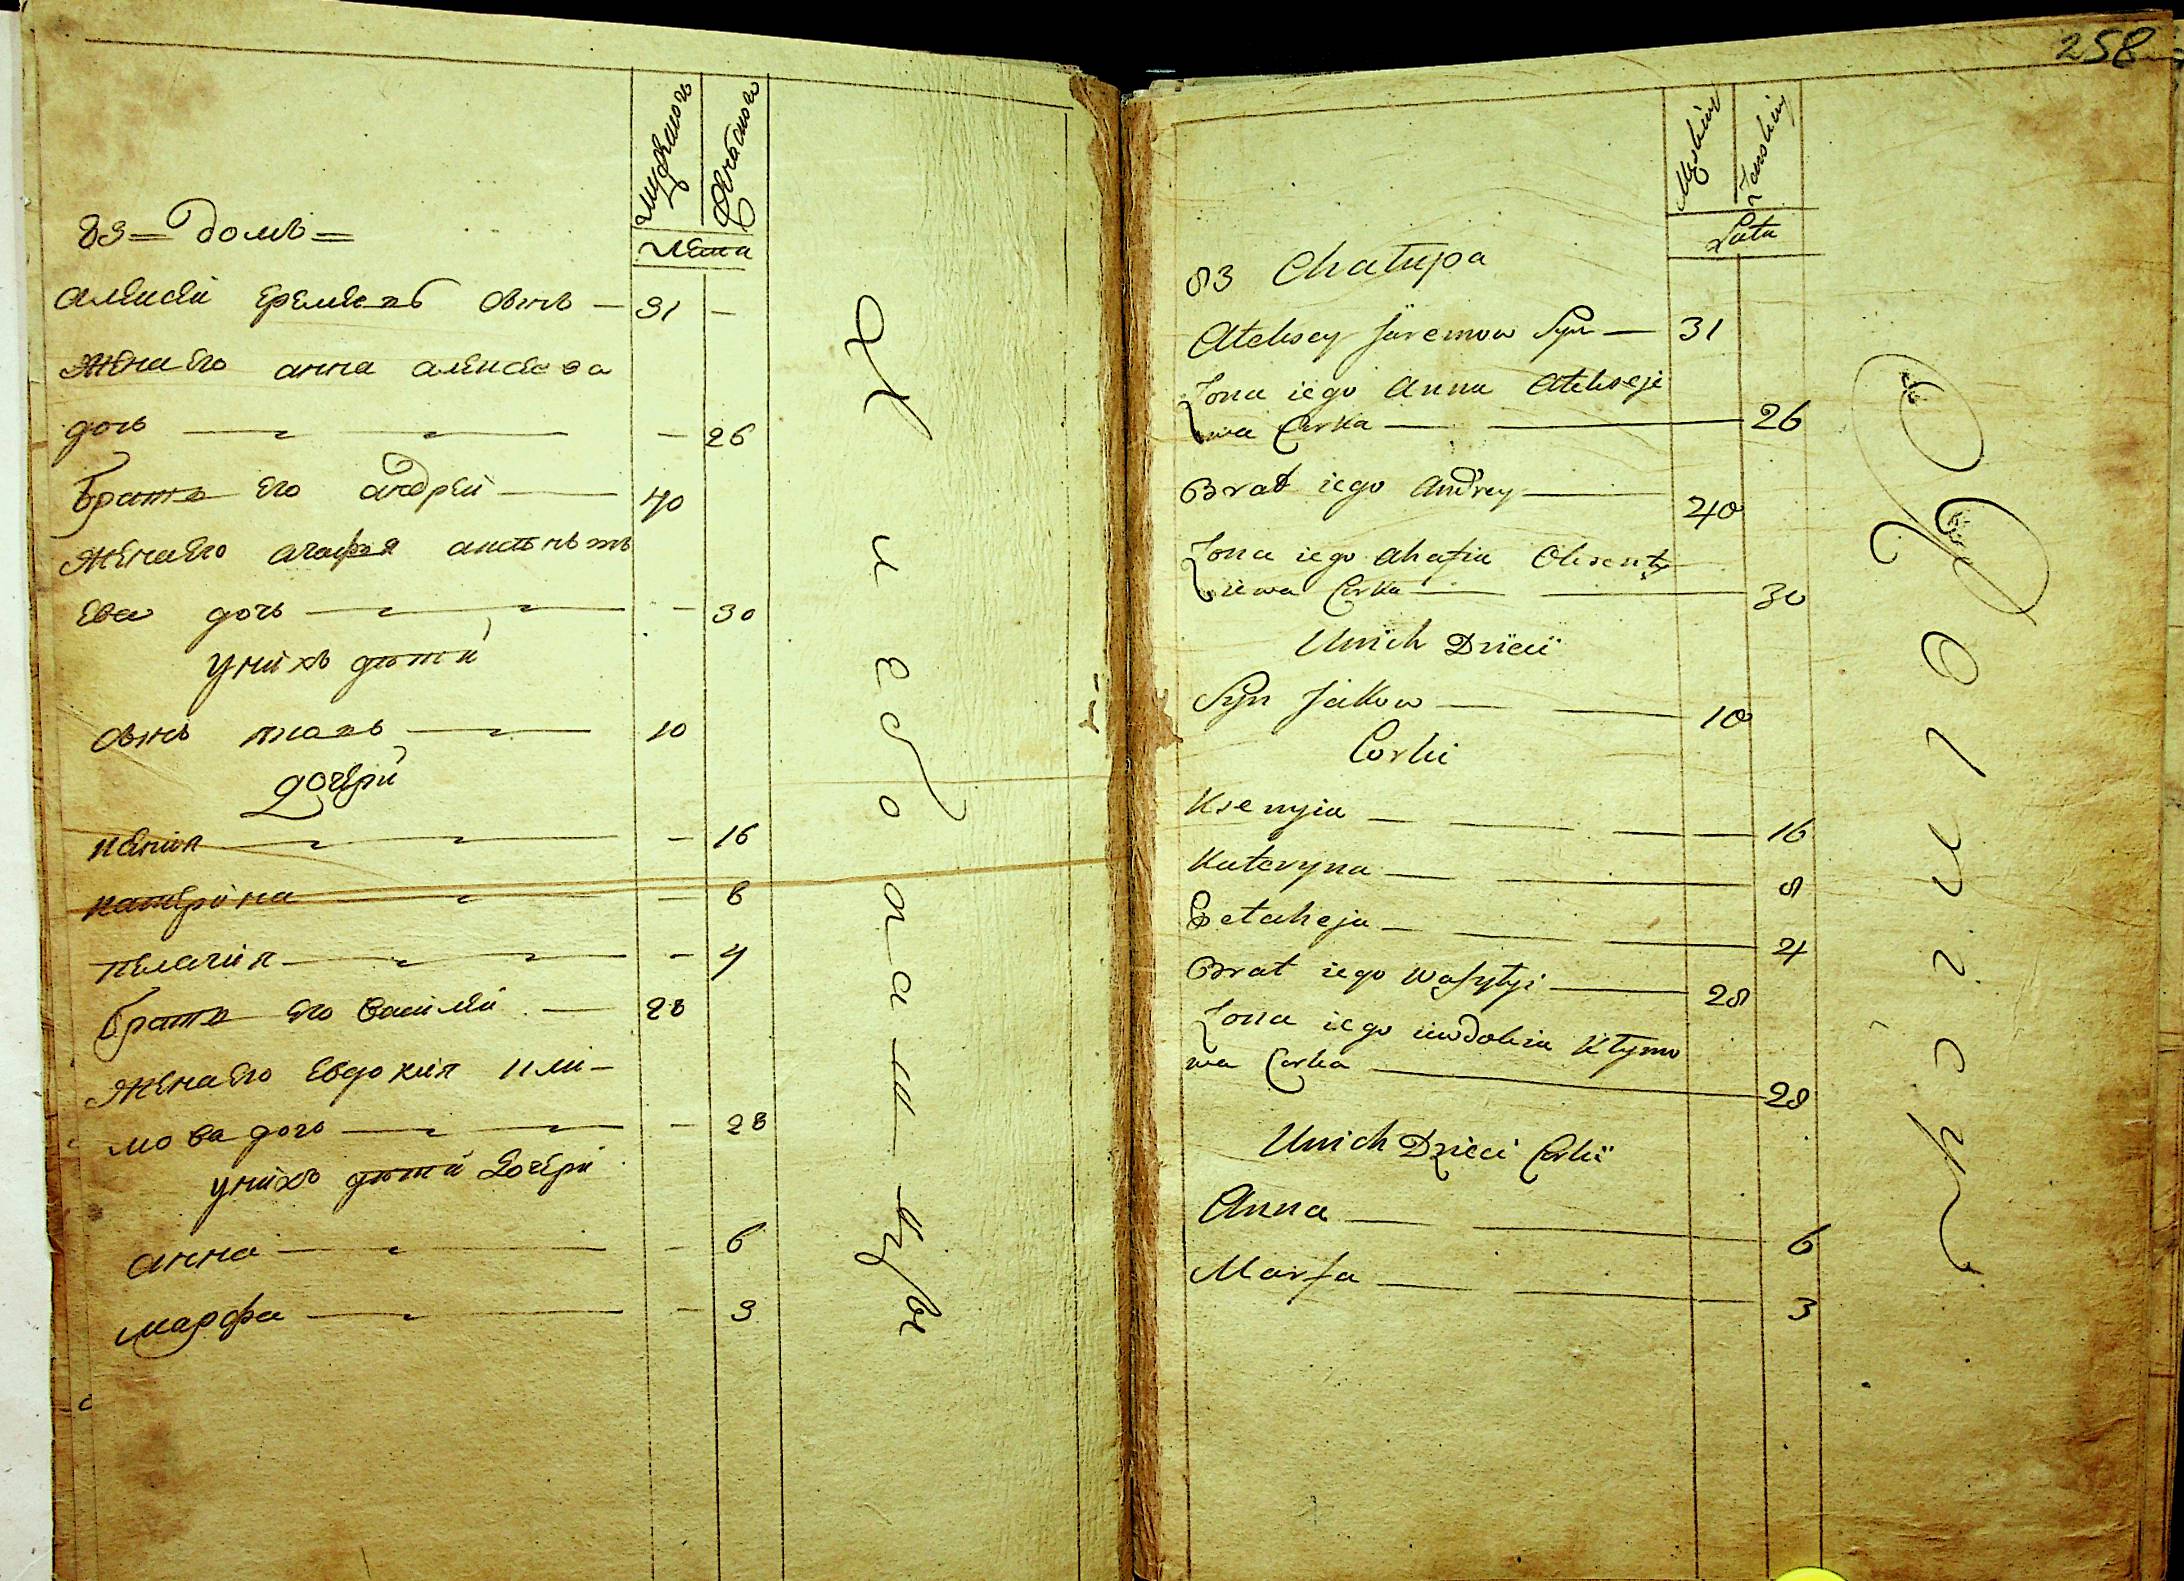 258
мужеска
женска
Лѣта
83 = домъ =
алексѣй еремѣевъ сынъ — 31 —
жена его анна алексѣева
дочь — — 26
братъ его андрей — 40
жена его агафья
ева дочь — — 30
у нихъ дѣти
сынъ яковъ — 10
дочери
ксенія — — 16
катерина — — 8
пелагия — — 4
братъ его василей — 28
жена его евдокия кли-
мова дочь — — 28
у нихъ дѣти дочери
анна — — 6
марфа — — 3
Męskiey
Żenskiey
Lata
83 Chałupa
Ałeksey Jaremow Syn — 31
Żona iego Anna Ałekseje
wa Corka — — 26
Brat iego Andrey — 40
Żona iego Ahafia
iewa Corka — — 30
Unich Dzieci
Syn Jakow — — 10
Corki
Ksenyia — — — 16
Kateryna — — — 8
Pełaheja — — — 4
Brat iego Wasyłyi — 28
Żona iego iewdokia Kłymo
wa Corka — 28
Unich Dzieci Corki
Anna — — 6
Marfa — — 3